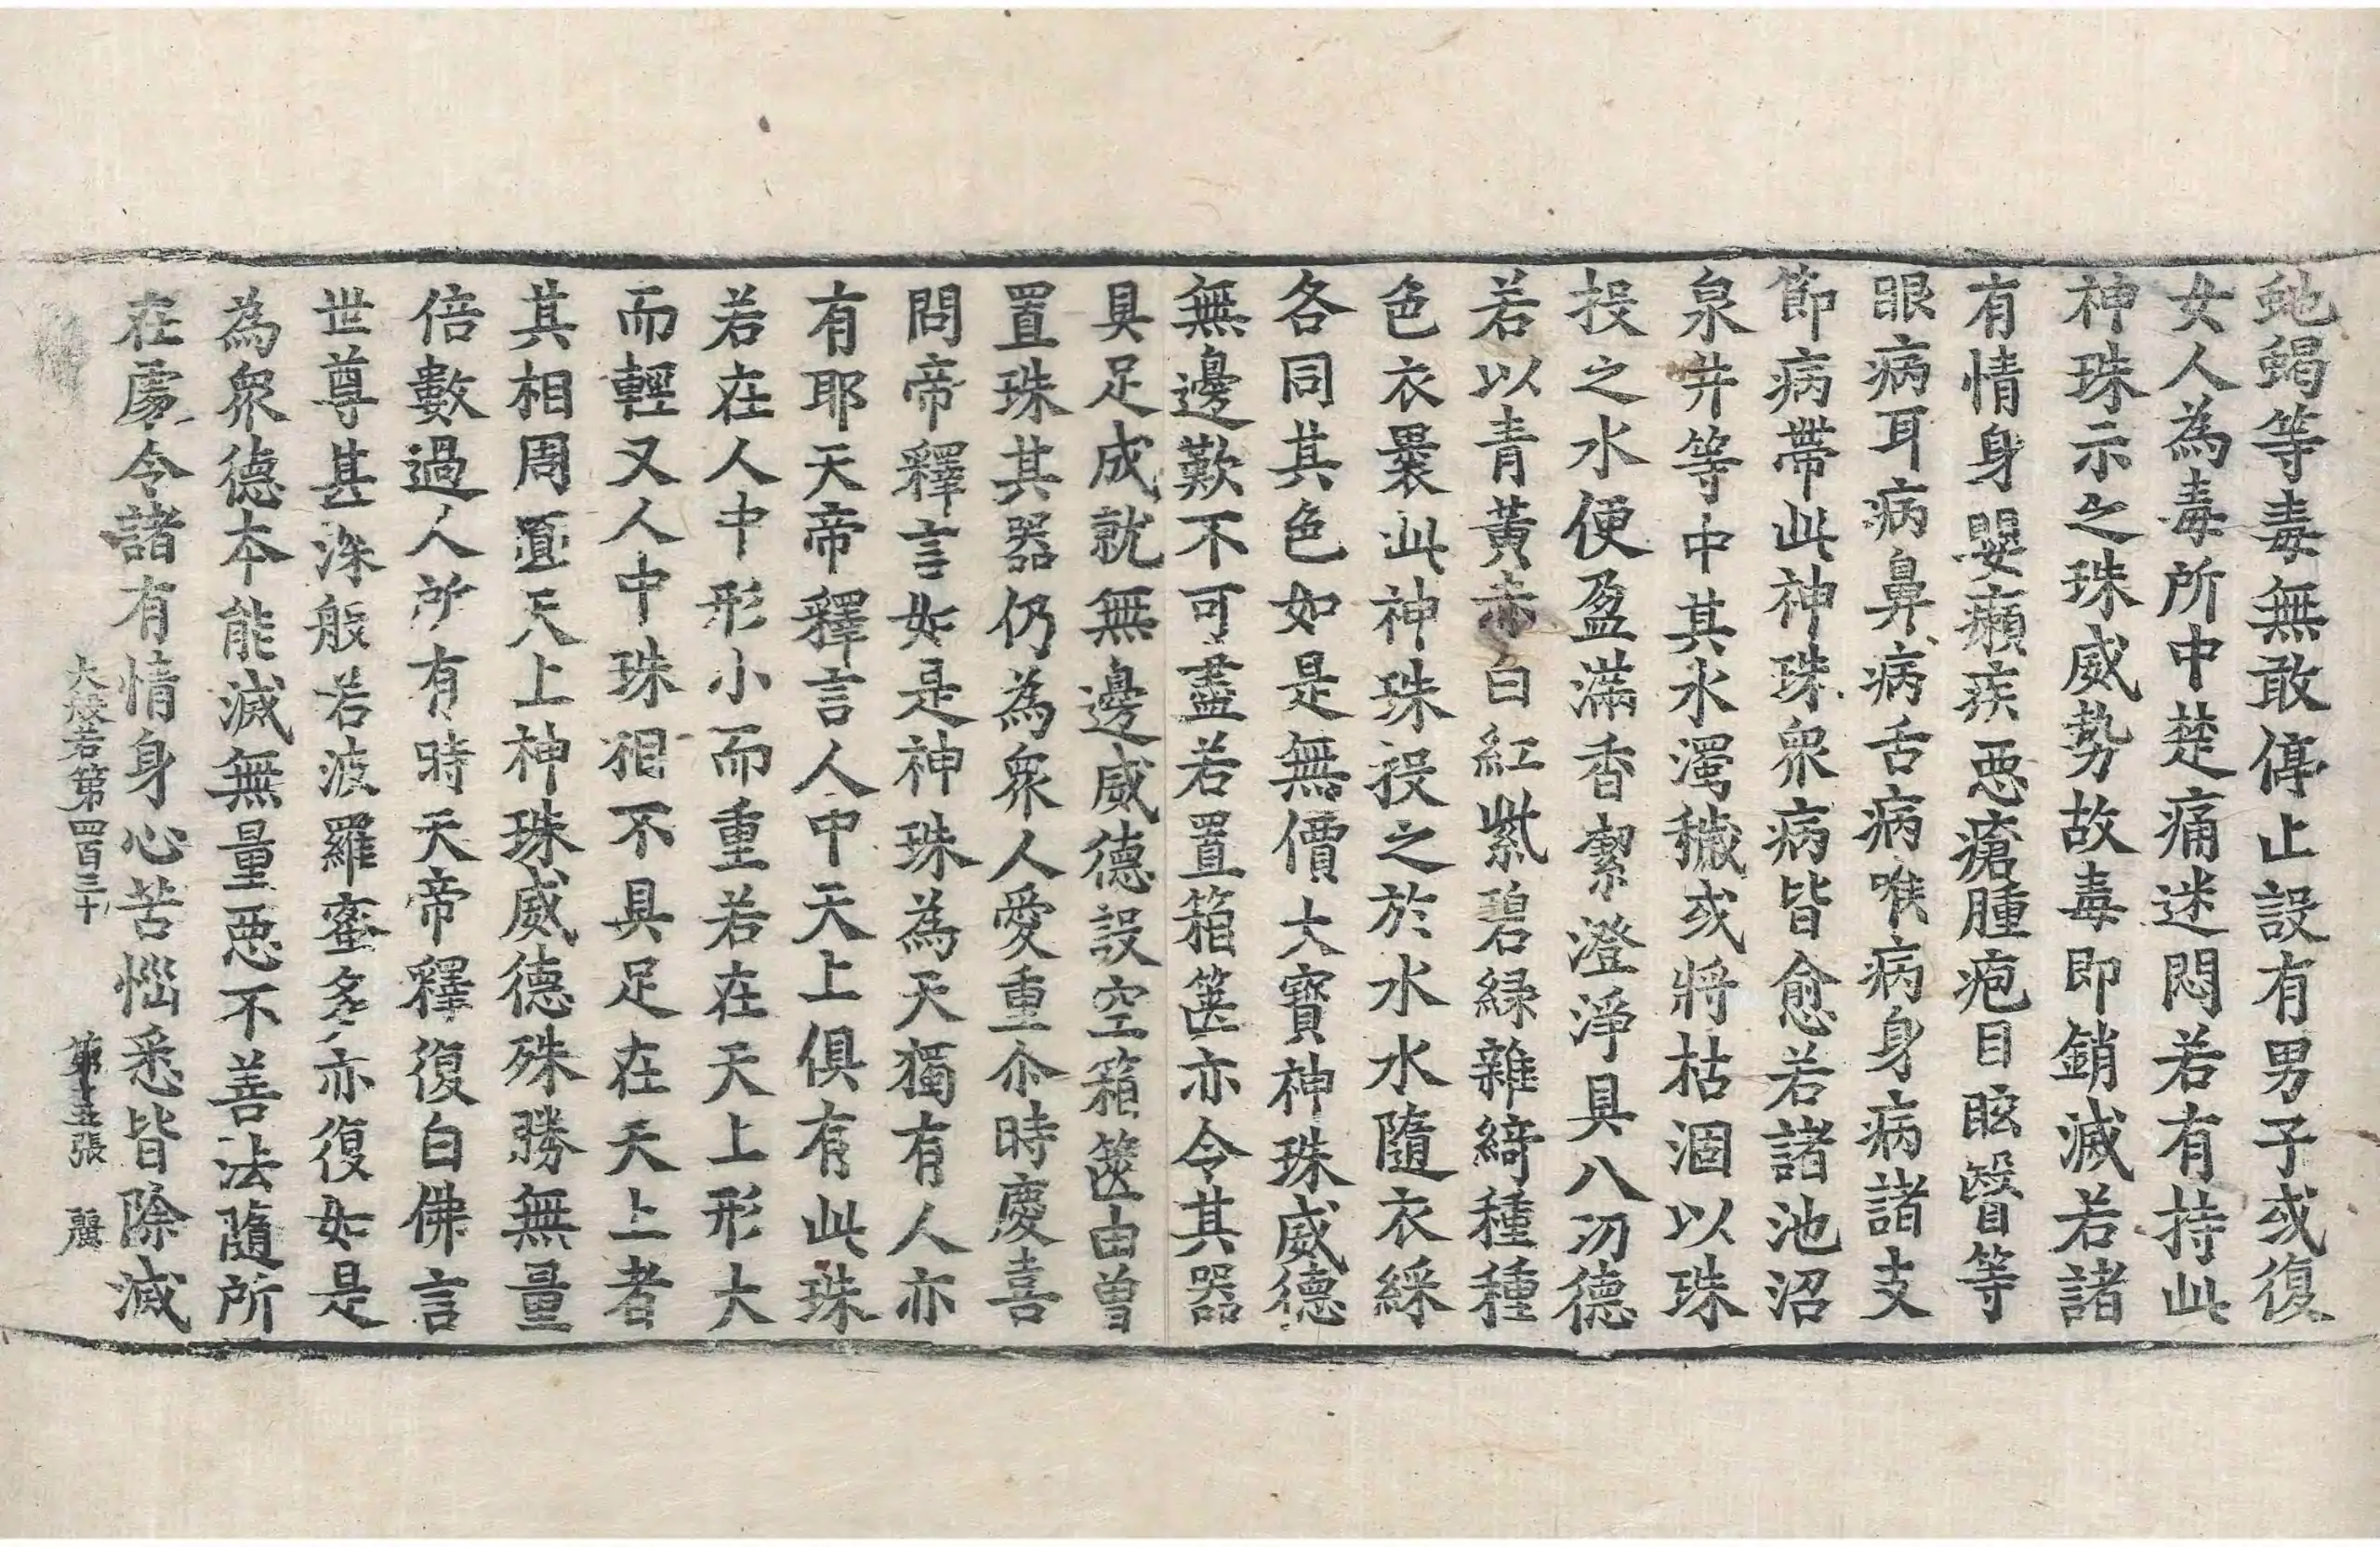 虵蝎等毒無敢停止設有男子或復
女人為毒所中楚痛迷悶若有持此
神珠示之珠威勢故毒即銷滅若諸
有情身嬰癩疾惡瘡腫疱目眩瞖等
眼病耳病鼻病舌病喉病身病諸支
節病帶此神珠衆病皆愈若諸池沼
泉井等中其水濁穢或將枯涸以珠
投之水便盈滿香潔澄淨具八功德
若以青黃赤白紅紫碧緑雜綺種種
色衣褁此神珠投之於水水隨衣綵
各同其色如是無價大寶神珠威德
無邊歎不可盡若置箱篋亦令其器
具足成就無邊威德設空箱篋由曾
置珠其器仍為衆人愛重尒時慶喜
問帝釋言如是神珠為天獨有人亦
有耶天帝釋言人中天上俱有此珠
若在人中形小而重若在天上形大
而輕又人中珠相不具足在天上者
其相周圓天上神珠威德殊勝無量
倍數過人所有時天帝釋復白佛言
世尊甚深般若波羅蜜多亦復如是
為衆德本能滅無量惡不善法隨所
在處令諸有情身心苦惱悉皆除滅
大般若第四百三十 第十五張 麗